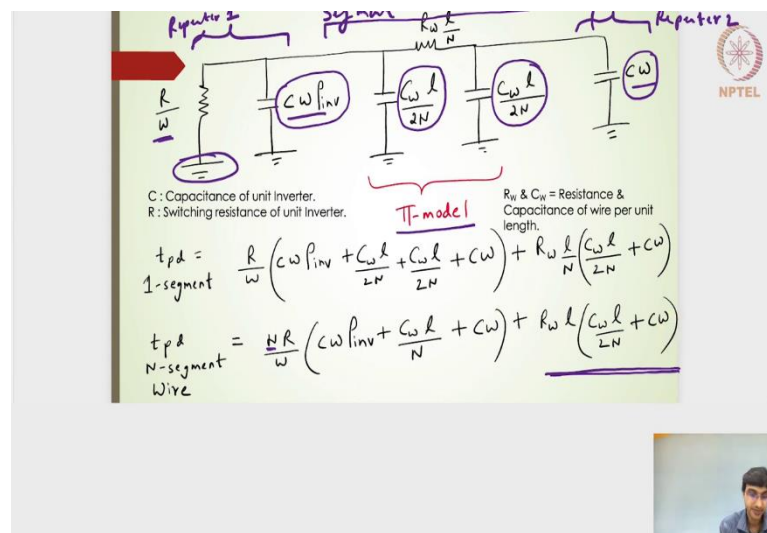 Repeater 1
Repeater 2
R_w l/N
NPTEL
R/W
CW P_inv
C_w l/2N
C_w l/2N
CW
C : Capacitance of unit Inverter.
R : Switching resistance of unit Inverter.
π-model
R_W & C_W = Resistance &
Capacitance of wire per unit
length.
t_pd = R/W (CW P_inv + C_w l/2N + C_w l/2N + CW) + R_w l/N (C_w l/2N + CW)
1-segment
t_pd = NR/W (CW P_inv + C_w l/N + CW) + R_w l (C_w l/2N + CW)
N-segment
Wire